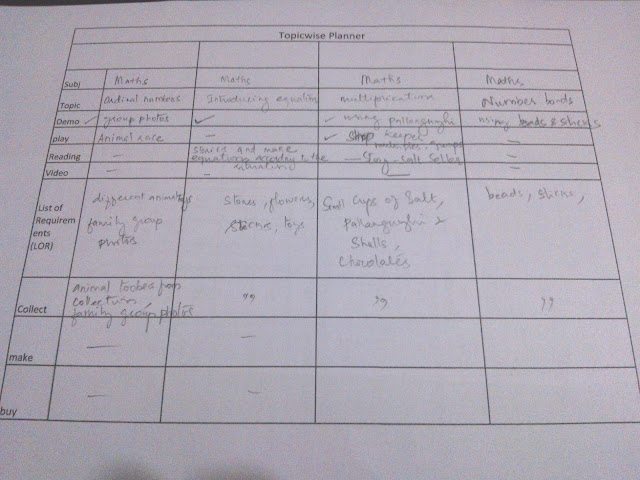 Topicwise Planner
Subj Maths Maths Maths Maths
Topic ordinal numbers Introducing equation multiplication Number bonds
Demo ✓ group photos ✓ using pallanguzhi using beads & sticks
play Animal race — ✓ Shop keeper
Reading — stories and make equations according to the situation — Story - Salt Seller —
Video — — — —
List of Requirements (LOR)
different animal toys
family group photos
Stones, flowers,
toys
Small cups of Salt,
Pallanguzhi &
Shells,
Chocolates
beads, sticks,
Collect
animal
collection,
family group photos
" " "
make — —
buy — —